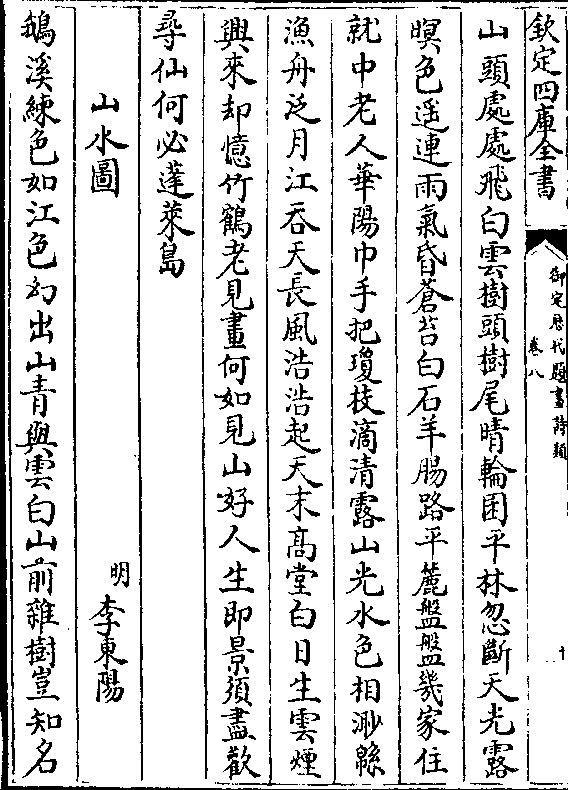 欽定四庫全書
御定歴代題畫詩類
卷八
十
山頭處處飛白雲樹頭樹尾晴輪囷平林忽斷天光露
暝色遥連雨氣昏蒼苔白石羊腸路平麓盤盤幾家住
就中老人華陽巾手把瓊枝滴清露山光水色相渺緜
漁舟泛月江吞天長風浩浩起天末髙堂白日生雲煙
興來却憶竹鶴老見畫何如見山好人生即景須盡歡
尋仙何必蓬萊島
山水圖
明 李東陽
鵝溪練色如江色幻出山青與雲白山前雜樹豈知名